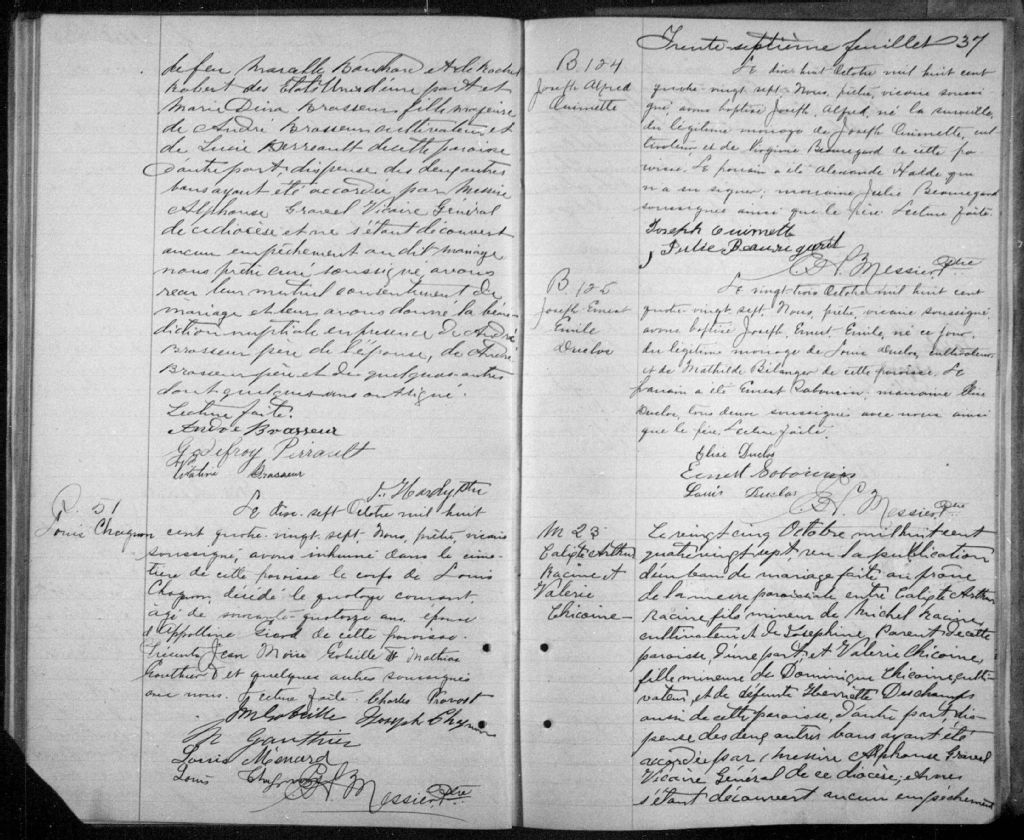 de feu Marcelle Bouchard et de Rachel
Robert des Etats Unis d'une part et
Marie Dina Brasseur fille mageure
de André Brasseur cultivateur et
de Lucie Perreault de cette paroisse
d'autre part, dispense des deux autres
bans ayant été accordée par Messire
Alphonse Gravel Vicaire Général
de ce diocèse et ne s'étant découvert
aucun empêchement au dit mariage
nous prêtre curé soussigné avons
reçu leur mutuel consentement de
mariage et leur avons donné la béné-
diction nuptiale en présence de André
Brasseur père de l'épouse, de André
Brasseur père et de quelques autres
dont quelques uns ont signé.
Lecture faite.
André Brasseur
Godefroy Pirrault
Brasseur
J. Hardy Ptre
S. 51
Louis Chagnon
Le dix-sept Octobre mil huit
cent quatre-vingt-sept. Nous, prêtre, vicaire
soussigné, avons inhumé dans le cime-
tière de cette paroisse le corps de Louis
Chagnon, décédé le quatorze courant,
âgé de soixante-quatorze ans, époux
d'Appolline Giard de cette paroisse.
Présents Jean Moïse Gobeille & Mathias
Gauthier & et quelques autres soussignés
avec nous. Lecture faite. Charles Provost
JM Gobeille Joseph Chagnon
M Gauthier
Louis Ménard
Louis
Messier Ptre
Trente-septième feuillet 37
B 124
Joseph Alfred
Ouimette
Le dix-huit Octobre mil huit cent
quatre-vingt-sept. Nous, prêtre, vicaire soussi-
gné, avons baptisé Joseph, Alfred, né la surveille,
du légitime mariage de Joseph Ouimette, cul-
tivateur et de Virginie Beauregard de cette pa-
roisse. Le parrain a été Alexandre Nadde qui
n'a su signer; marraine Julie Beauregard
soussignée ainsi que le père. Lecture faite.
Joseph Ouimette
Julie Beauregard
Messier Ptre
B. 125
Joseph Ernest
Emile
Duclos
Le vingt-trois Octobre mil huit cent
quatre-vingt-sept. Nous, prêtre, vicaire soussigné,
avons baptisé Joseph, Ernest Emile, né ce jour,
du légitime mariage de Louis Duclos, cultivateur,
et de Mathilde Bélanger de cette paroisse. Le
parrain a été Ernest Sabourin; marraine Elise
Duclos, tous deux soussignés avec nous ainsi
que le père. Lecture faite.
Elise Duclos
Ernest Sabourin
Louis Duclos
Messier Ptre
M 23
Calixte Arthur
Racine et
Valerie
Chicoine
Le vingt cinq Octobre mil huit cent
quatre vingt sept, vu la publication
d'un ban de mariage faite au prône
de la messe paroissiale entre Calixte Arthur
Racine fils mineur de Michel Racine
cultivateur et de Josephine Parent de cette
paroisse, d'une part, et Valerie Chicoine
fille mineure de Dominique Chicoine culti-
vateur, et de défunte Henriette Deschamps
aussi de cette paroisse, d'autre part, dis-
pense des deux autres bans ayant été
accordée par Messire Alphonse Gravel
Vicaire Général de ce diocèse, et ne
s'étant découvert aucun empêchement